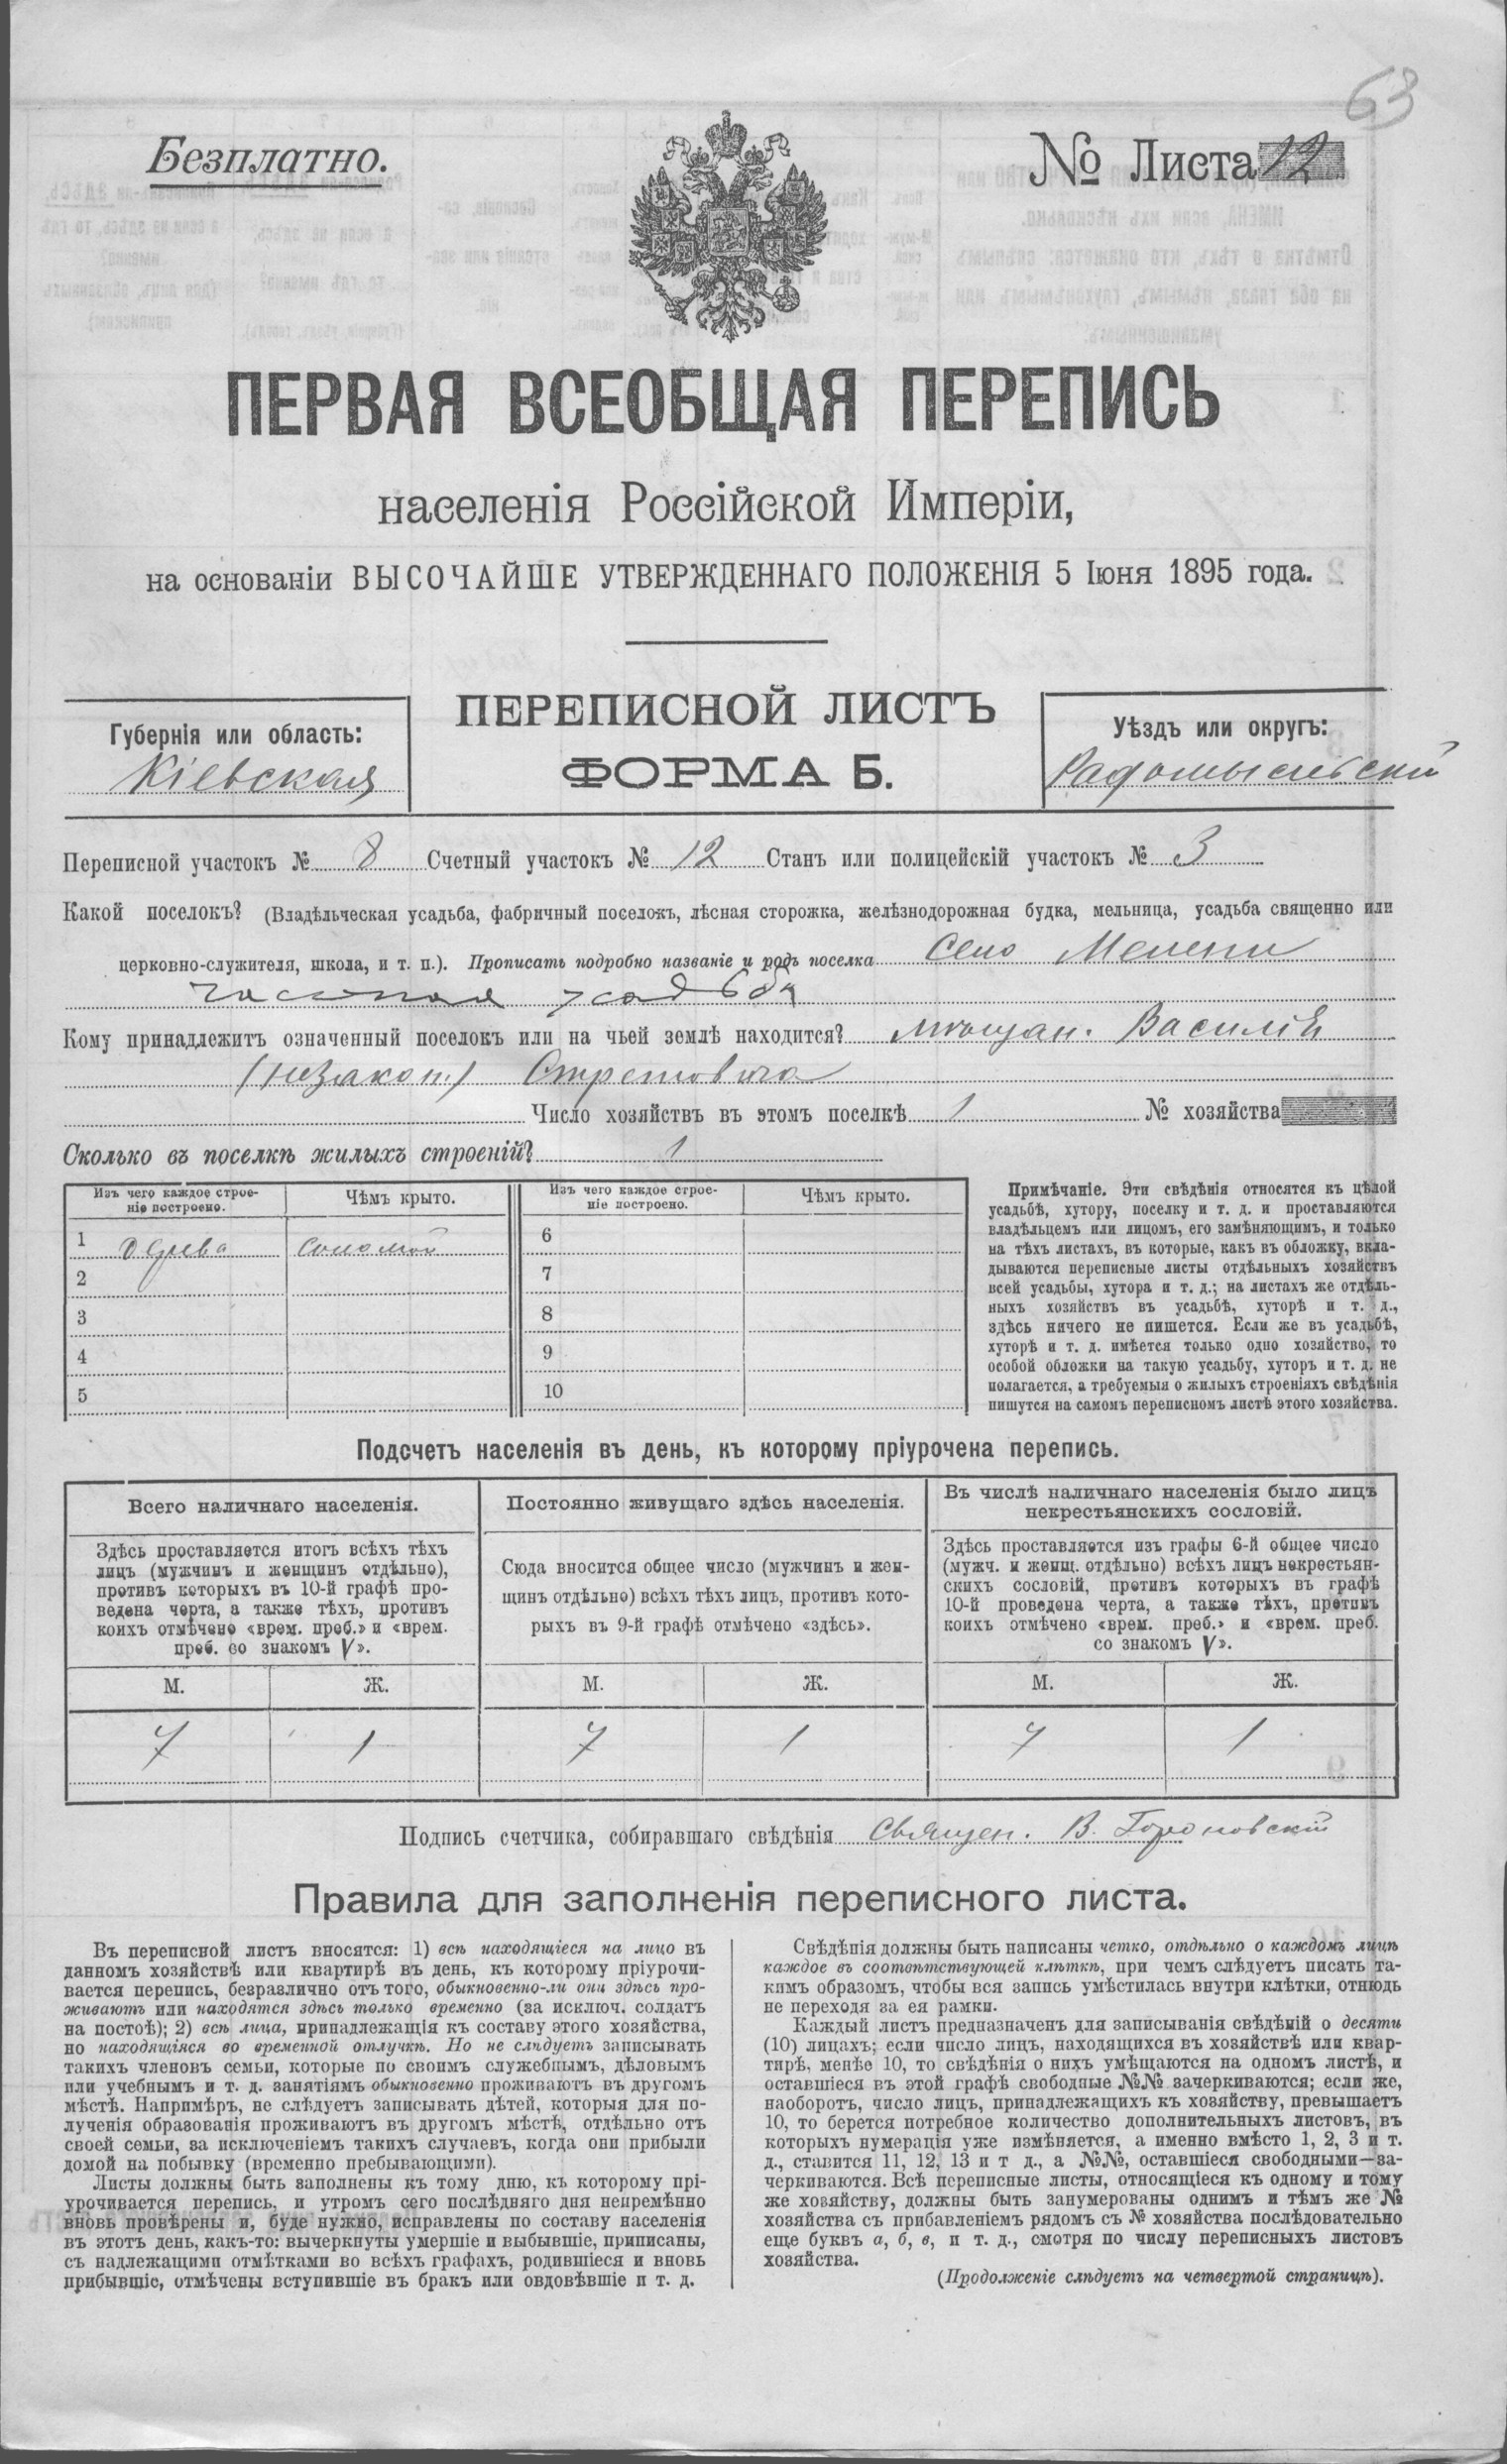 63
Безплатно.
№ Листа 12
ПЕРВАЯ ВСЕОБЩАЯ ПЕРЕПИСЬ
населенія Россійской Имперіи,
на основаніи ВЫСОЧАЙШЕ УТВЕРЖДЕННАГО ПОЛОЖЕНІЯ 5 Іюня 1895 года.
ПЕРЕПИСНОЙ ЛИСТЪ
ФОРМА Б.
Губернія или область:
Кіевская
Уѣздъ или округъ:
Радомысльскій
Переписной участокъ № 8 Счетный участокъ № 12 Станъ или полицейскій участокъ № 3
Какой поселокъ? (Владѣльческая усадьба, фабричный поселокъ, лѣсная сторожка, желѣзнодорожная будка, мельница, усадьба священно или
церковно-служителя, школа, и т. п.). Прописать подробно названіе и родъ поселка Село Мелени
усадьба
Кому принадлежитъ означенный поселокъ или на чьей землѣ находится? мѣщан. Василія
(незакон.)
Число хозяйствъ въ этомъ поселкѣ 1 № хозяйства
Сколько въ поселкѣ жилыхъ строеній? 1
Изъ чего каждое строе-
ніе построено.
Чѣмъ крыто.
Изъ чего каждое строе-
ніе построено.
Чѣмъ крыто.
1 дерева соломой
2
3
4
5
6
7
8
9
10
Примѣчаніе. Эти свѣдѣнія относятся къ цѣлой
усадьбѣ, хутору, поселку и т. д. и проставляются
владѣльцемъ или лицомъ, его замѣняющимъ, и только
на тѣхъ листахъ, въ которые, какъ въ обложку, вкла-
дываются переписные листы отдѣльныхъ хозяйствъ
всей усадьбы, хутора и т. д.; на листахъ же отдѣль-
ныхъ хозяйствъ въ усадьбѣ, хуторѣ и т. д.,
здѣсь ничего не пишется. Если же въ усадьбѣ,
хуторѣ и т. д. имѣется только одно хозяйство, то
особой обложки на такую усадьбу, хуторъ и т. д. не
полагается, а требуемыя о жилыхъ строеніяхъ свѣдѣнія
пишутся на самомъ переписномъ листѣ этого хозяйства.
Подсчетъ населенія въ день, къ которому пріурочена перепись.
Всего наличнаго населенія.
Здѣсь проставляется итогъ всѣхъ тѣхъ
лицъ (мужчинъ и женщинъ отдѣльно),
противъ которыхъ въ 10-й графѣ про-
ведена черта, а также тѣхъ, противъ
коихъ отмѣчено «врем. преб.» и «врем.
преб. со знакомъ V».
М. Ж.
7 1
Постоянно живущаго здѣсь населенія.
Сюда вносится общее число (мужчинъ и жен-
щинъ отдѣльно) всѣхъ тѣхъ лицъ, противъ кото-
рыхъ въ 9-й графѣ отмѣчено «здѣсь».
М. Ж.
7 1
Въ числѣ наличнаго населенія было лицъ
некрестьянскихъ сословій.
Здѣсь проставляется изъ графы 6-й общее число
(мужч. и женщ. отдѣльно) всѣхъ лицъ некрестьян-
скихъ сословій, противъ которыхъ въ графѣ
10-й проведена черта, а также тѣхъ, противъ
коихъ отмѣчено «врем. преб.» и «врем. преб.
со знакомъ V».
М. Ж.
7 1
Подпись счетчика, собиравшаго свѣдѣнія Священ. В.
Правила для заполненія переписного листа.
Въ переписной листъ вносятся: 1) всѣ находящіеся на лицо въ
данномъ хозяйствѣ или квартирѣ въ день, къ которому пріурочи-
вается перепись, безразлично отъ того, обыкновенно-ли они здѣсь про-
живаютъ или находятся здѣсь только временно (за исключ. солдатъ
на постоѣ); 2) всѣ лица, принадлежащія къ составу этого хозяйства,
но находящіяся во временной отлучкѣ. Но не слѣдуетъ записывать
такихъ членовъ семьи, которые по своимъ служебнымъ, дѣловымъ
или учебнымъ и т. д. занятіямъ обыкновенно проживаютъ въ другомъ
мѣстѣ. Напримѣръ, не слѣдуетъ записывать дѣтей, которыя для по-
лученія образованія проживаютъ въ другомъ мѣстѣ, отдѣльно отъ
своей семьи, за исключеніемъ такихъ случаевъ, когда они прибыли
домой на побывку (временно пребывающими).
Листы должны быть заполнены къ тому дню, къ которому прі-
урочивается перепись, и утромъ сего послѣдняго дня непремѣнно
вновь провѣрены и, буде нужно, исправлены по составу населенія
въ этотъ день, какъ-то: вычеркнуты умершіе и выбывшіе, приписаны,
съ надлежащими отмѣтками во всѣхъ графахъ, родившіеся и вновь
прибывшіе, отмѣчены вступившіе въ бракъ или овдовѣвшіе и т. д.
Свѣдѣнія должны быть написаны четко, отдѣльно о каждомъ лицѣ
каждое въ соотвѣтствующей клѣткѣ, при чемъ слѣдуетъ писать та-
кимъ образомъ, чтобы вся запись умѣстилась внутри клѣтки, отнюдь
не переходя за ея рамки.
Каждый листъ предназначенъ для записыванія свѣдѣній о десяти
(10) лицахъ; если число лицъ, находящихся въ хозяйствѣ или квар-
тирѣ, менѣе 10, то свѣдѣнія о нихъ умѣщаются на одномъ листѣ, и
оставшіеся въ этой графѣ свободные №№ зачеркиваются; если же,
наоборотъ, число лицъ, принадлежащихъ къ хозяйству, превышаетъ
10, то берется потребное количество дополнительныхъ листовъ, въ
которыхъ нумерація уже измѣняется, а именно вмѣсто 1, 2, 3 и т.
д., ставится 11, 12, 13 и т д., а №№, оставшіеся свободными—за-
черкиваются. Всѣ переписные листы, относящіеся къ одному и тому
же хозяйству, должны быть занумерованы однимъ и тѣмъ же №
хозяйства съ прибавленіемъ рядомъ съ № хозяйства послѣдовательно
еще буквъ а, б, в, и т. д., смотря по числу переписныхъ листовъ
хозяйства.
(Продолженіе слѣдуетъ на четвертой страницѣ).